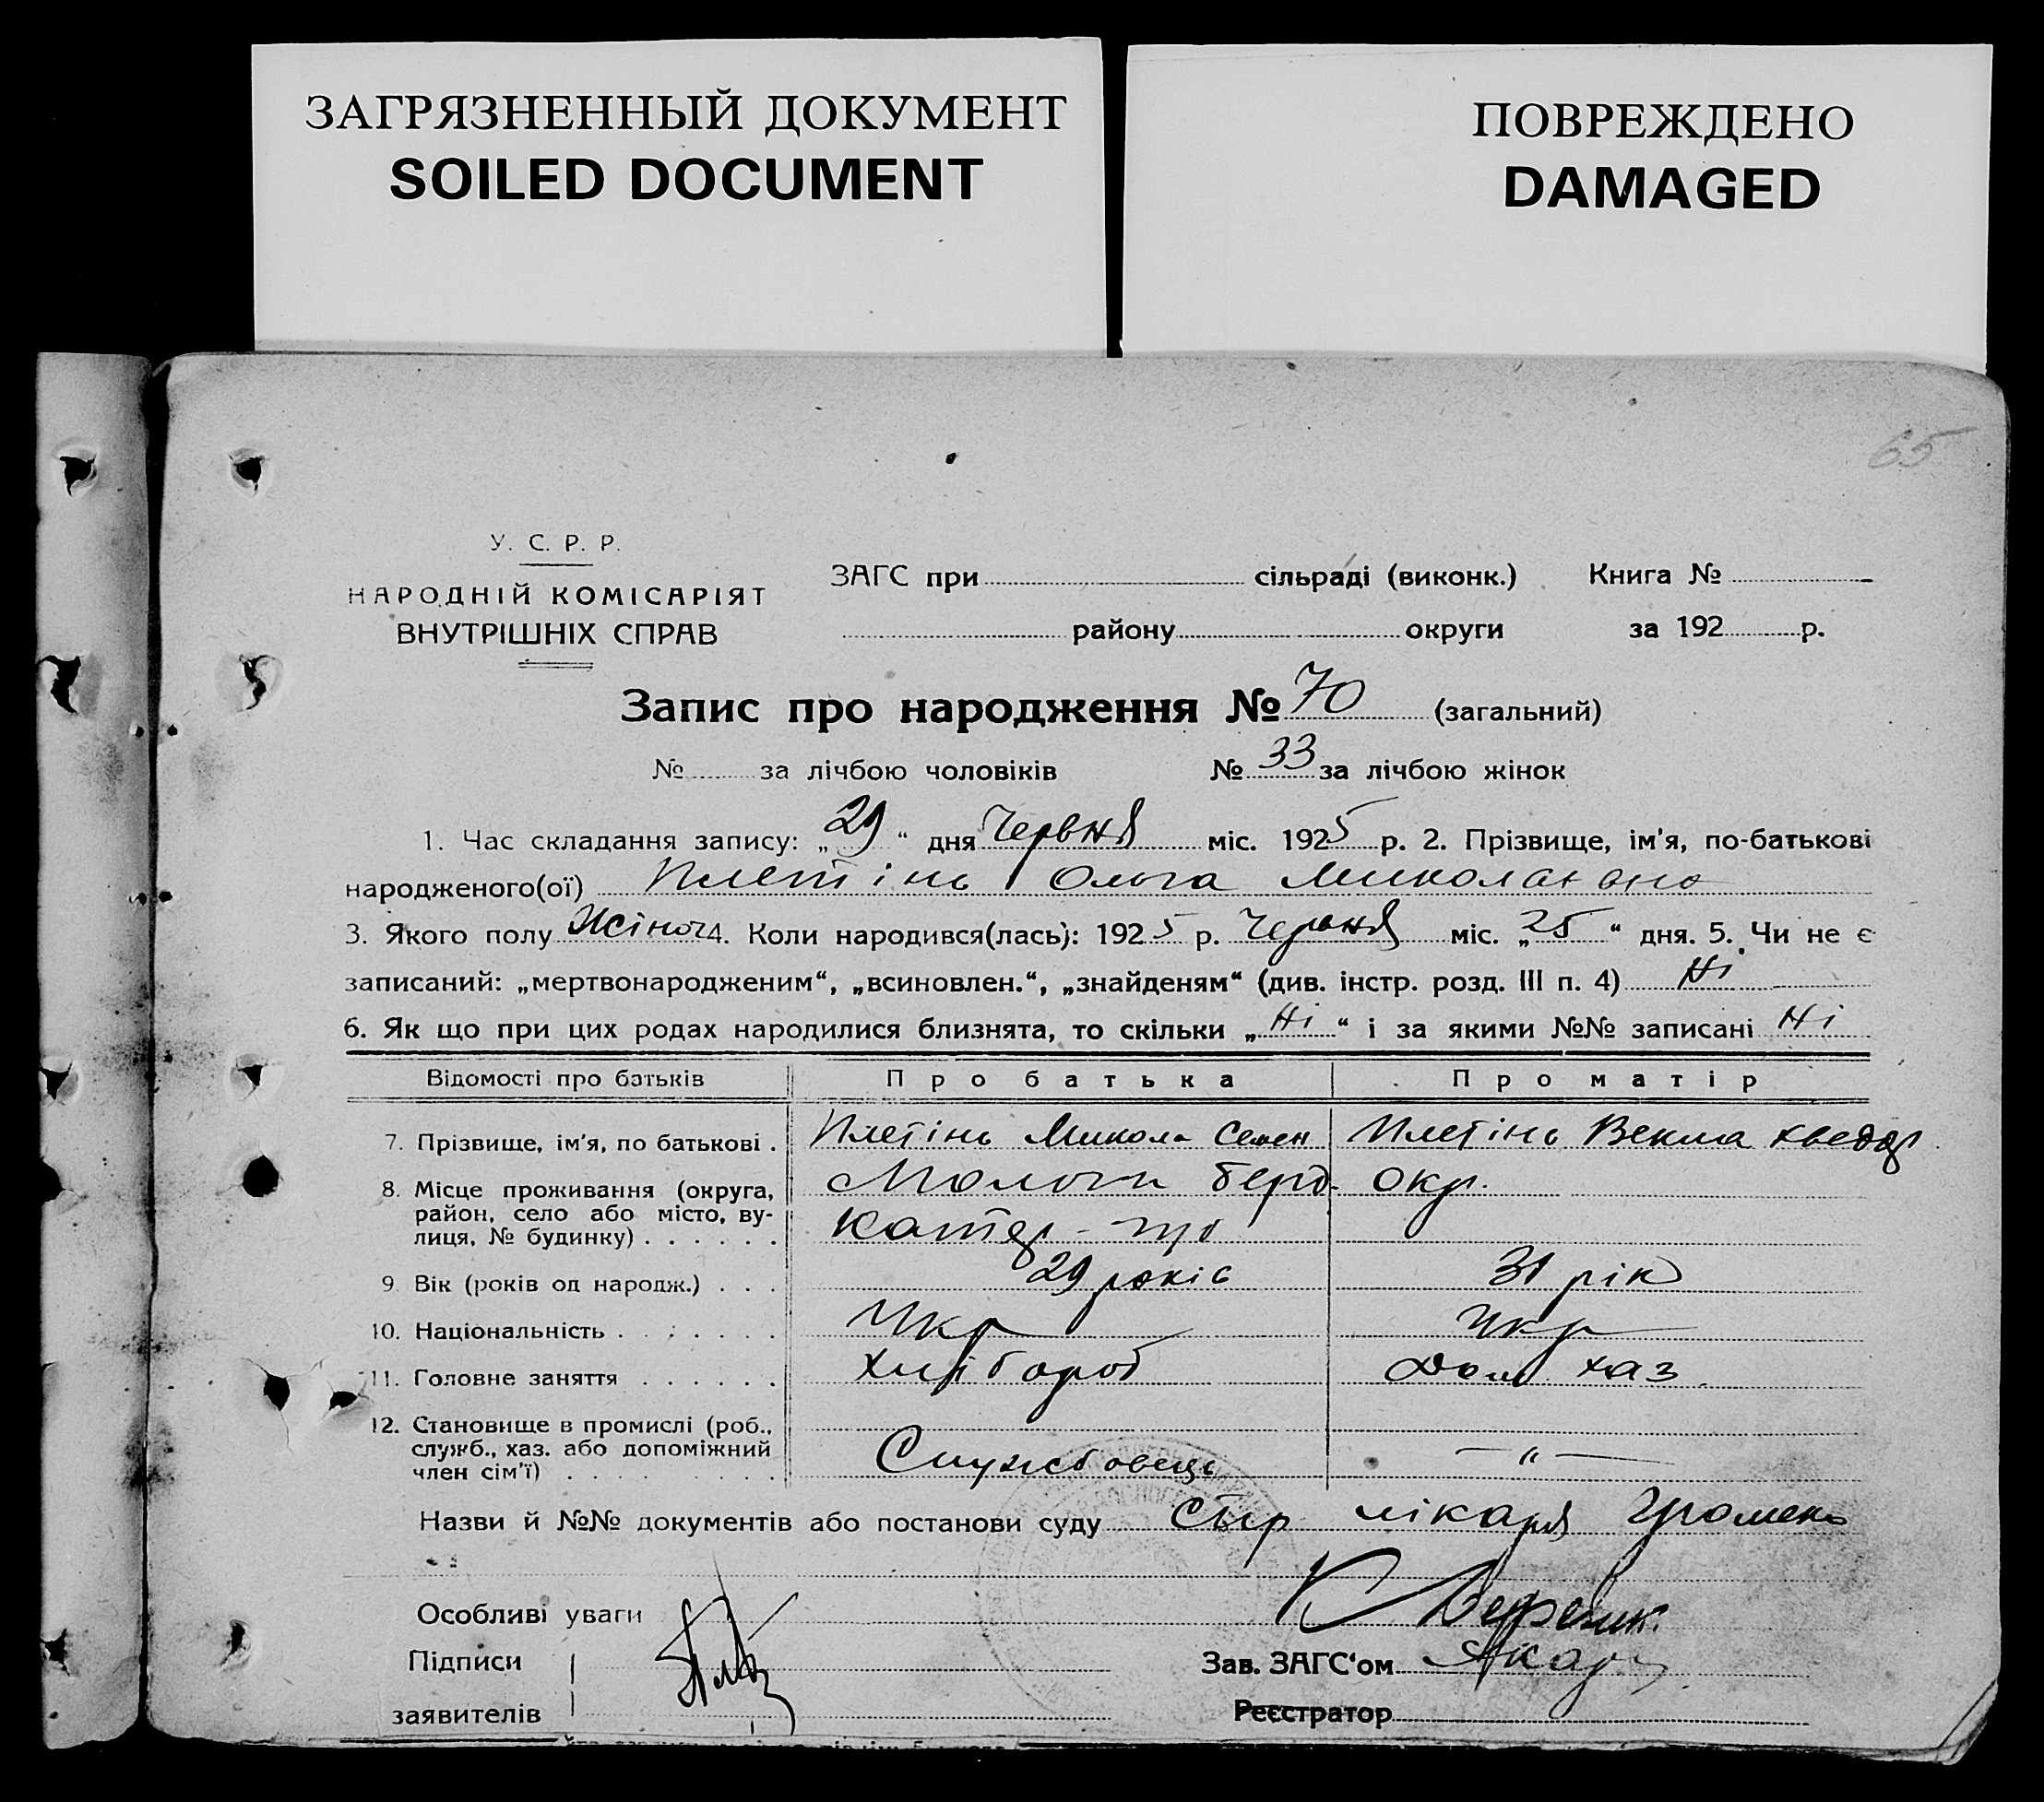 ЗАГРЯЗНЕННЫЙ ДОКУМЕНТ
SOILED DOCUMENT
ПОВРЕЖДЕНО
DAMAGED
65
У. С. Р. Р.
НАРОДНІЙ КОМІСАРІЯТ
ВНУТРІШНІХ СПРАВ
ЗАГС при сільраді (виконк.) Книга №
району округи за 192 р.
Запис про народження № 70 (загальний)
№ за лічбою чоловіків № 33 за лічбою жінок
1. Час складання запису: „29“ дня Червня міс. 1925 р. 2. Прізвище, ім'я, по-батькові
народженого(ої) Плетінь Ольга Миколаєвна
3. Якого полу Жіноч 4. Коли народився(лась): 1925 р. Червня міс. „25“ дня. 5. Чи не є
записаний: „мертвонародженим“, „всиновлен.“, „знайденям“ (див. інстр. розд. III п. 4) Ні
6. Як що при цих родах народилися близнята, то скільки „Ні“ і за якими №№ записані Ні
Відомості про батьків Про батька Про матір
7. Прізвище, ім'я, по батькові . Плетінь Микола Семен Плетінь Векла
8. Місце проживання (округа, Молочн Берд. Окр.
район, село або місто, ву-
лиця, № будинку) . . . . . .
9. Вік (років од народж.) . . . 29 років 31 рік
10. Національність . . . . . . . Укр Укр
11. Головне заняття . . . . . . Хлібороб Дом хаз.
12. Становище в промислі (роб.,
служб., хаз. або допоміжний Службовець — " —
член сім'ї) . . . . . . . . .
Назви й №№ документів або постанови суду лікаря
Особливі уваги
Підписи Зав. ЗАГС‘ом
заявителів Реєстратор